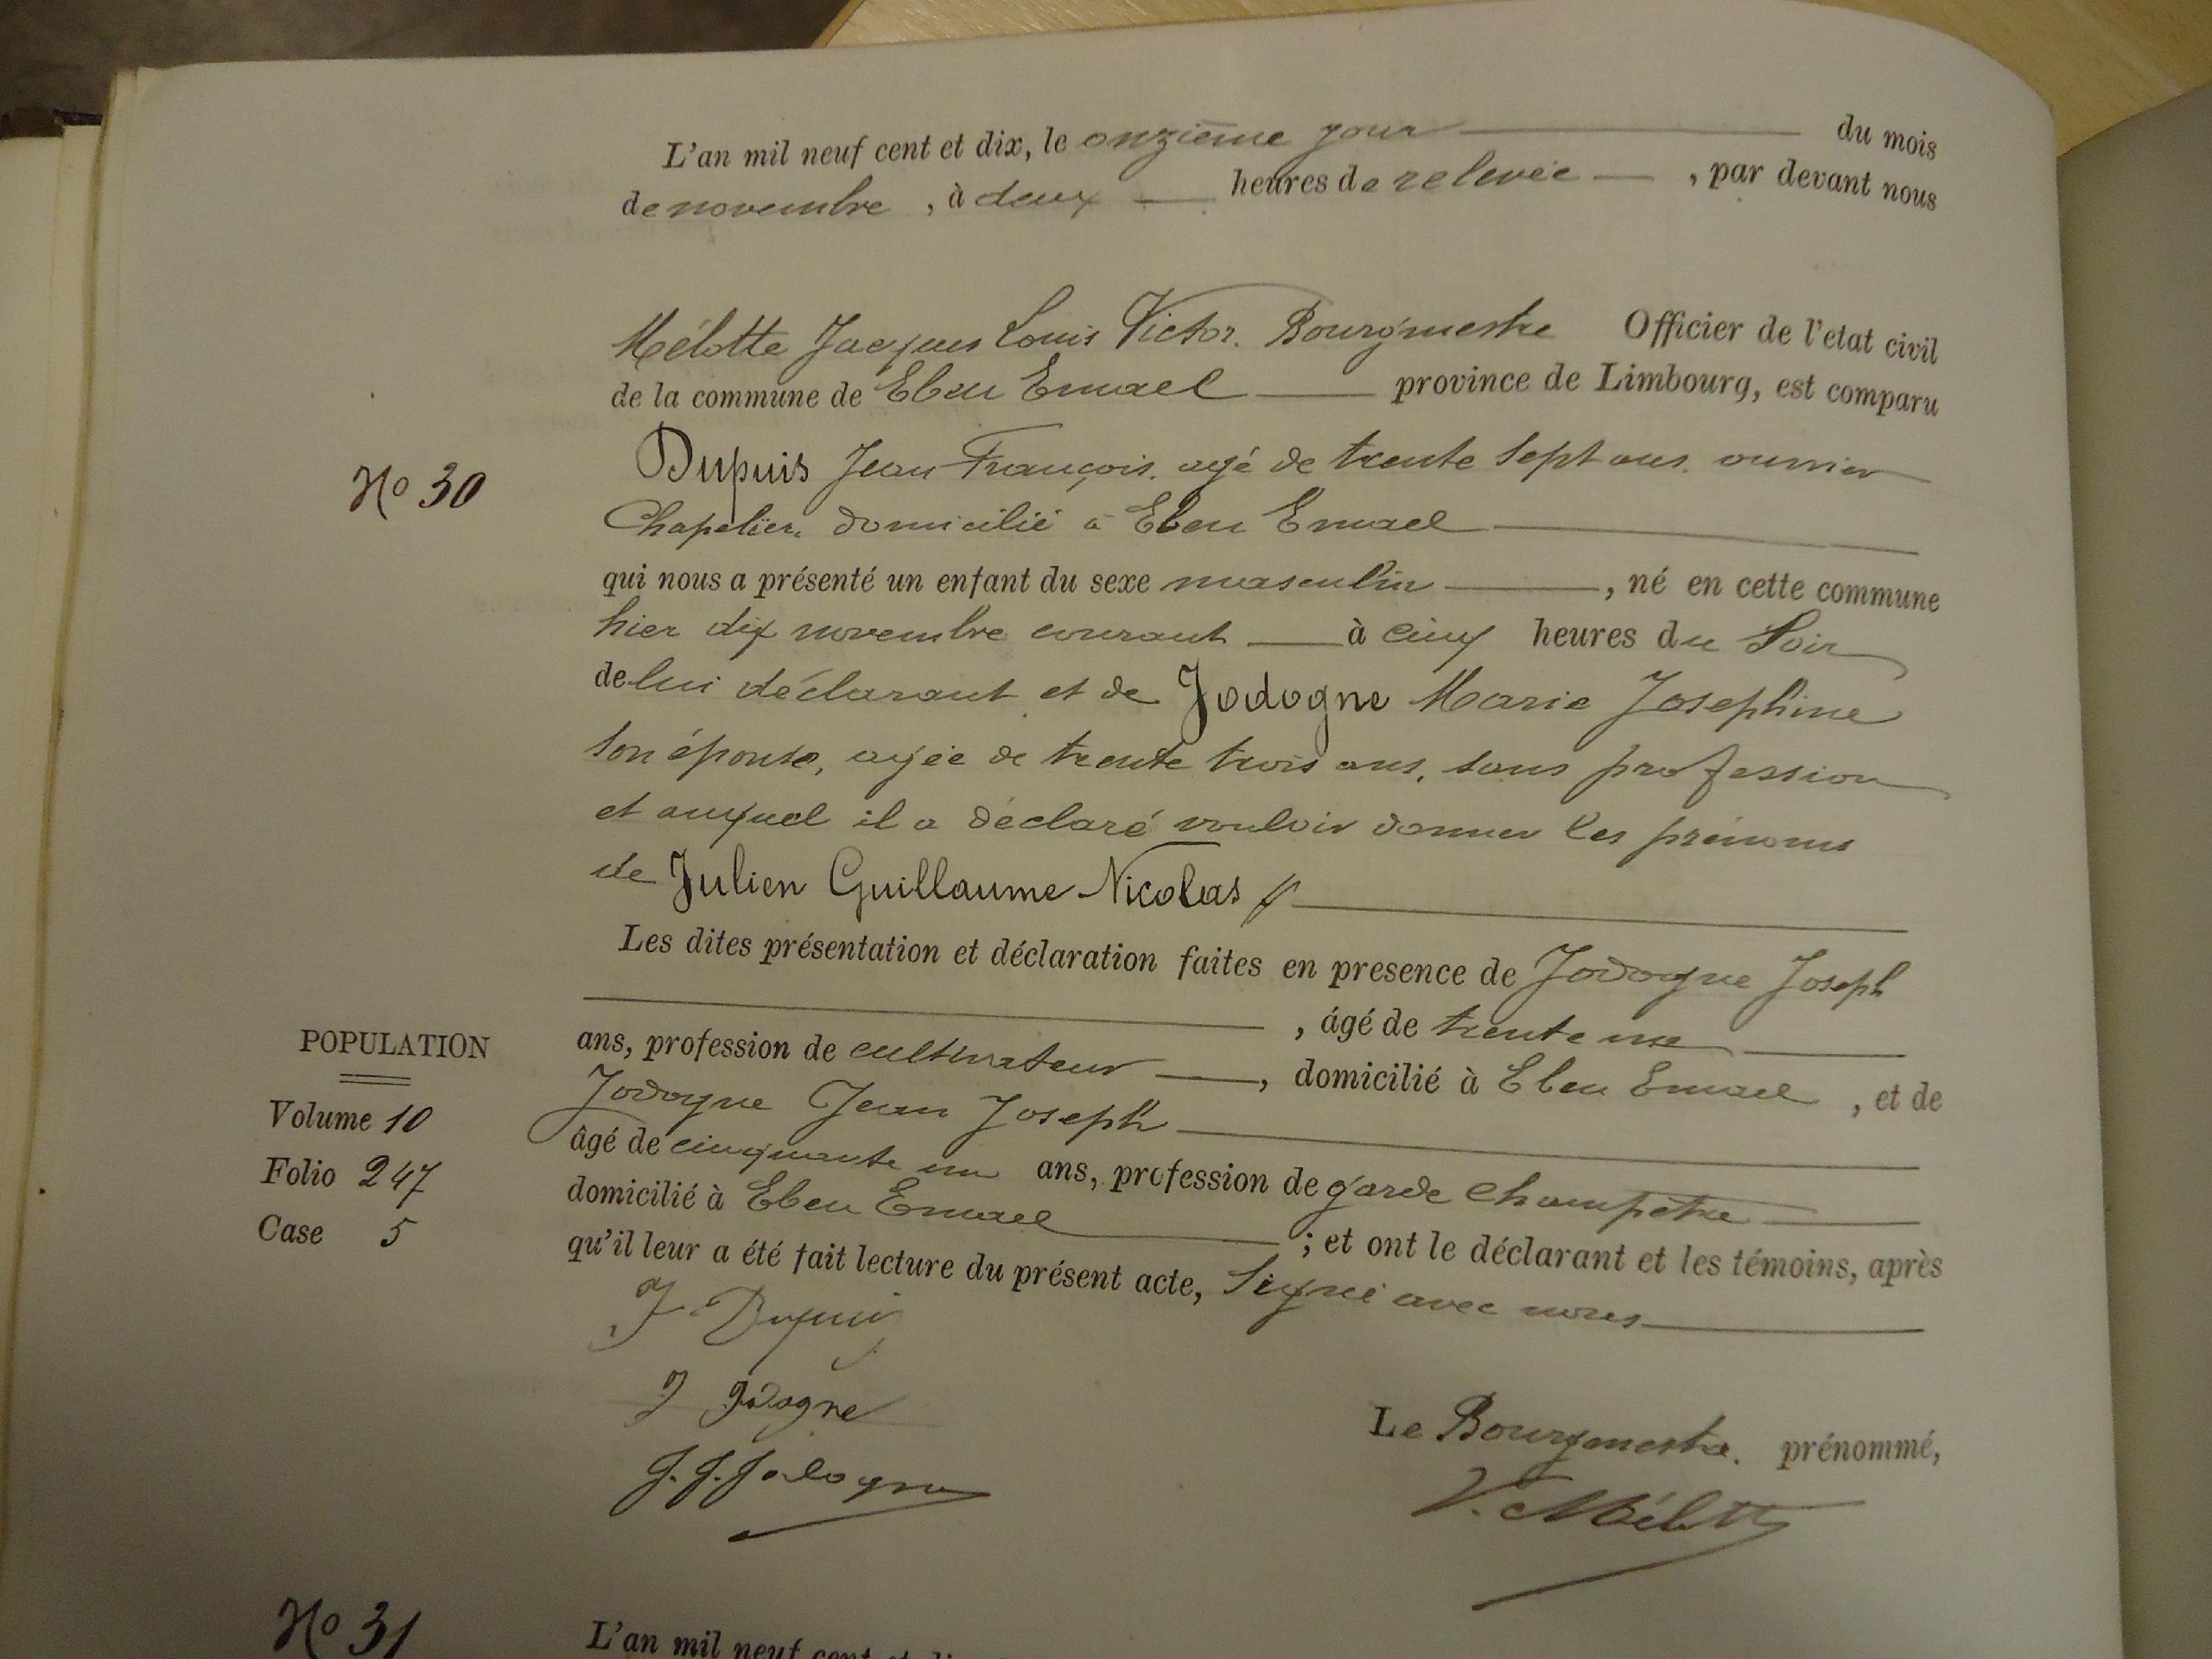 L'an mil neuf cent et dix, le onzième jour du mois
de novembre, à deux heures de relevée, par devant nous
Mélotte Jacques Louis Victor. Bourgmestre Officier de l'etat civil
de la commune de Eben Emael province de Limbourg, est comparu
No 30
Dupuis Jean François. agé de trente sept ans. ouvrier
Chapelier. domicilié à Eben Emael
qui nous a présenté un enfant du sexe masculin, né en cette commune
hier dix novembre courant à cinq heures du Soir
de lui déclarant et de Jodogne Marie Josephine
son épouse, agée de trente trois ans, sans profession
et auquel il a déclaré vouloir donner les prénoms
de Julien Guillaume Nicolas
Les dites présentation et déclaration faites en presence de Jodogne Joseph
, âgé de trente
ans, profession de cultivateur, domicilié à Eben Emael, et de
Jodogne Jean Joseph
âgé de cinquante un ans, profession de garde champêtre
domicilié à Eben Emael; et ont le déclarant et les témoins, après
qu'il leur a été fait lecture du présent acte, Signé avec nous
POPULATION
Volume 10
Folio 247
Case 5
J. Dupuis
J Jodogne
J. J. Jodogne
Le Bourgmestre. prénommé,
V. Mélotte
No 31
L'an mil neuf cent et